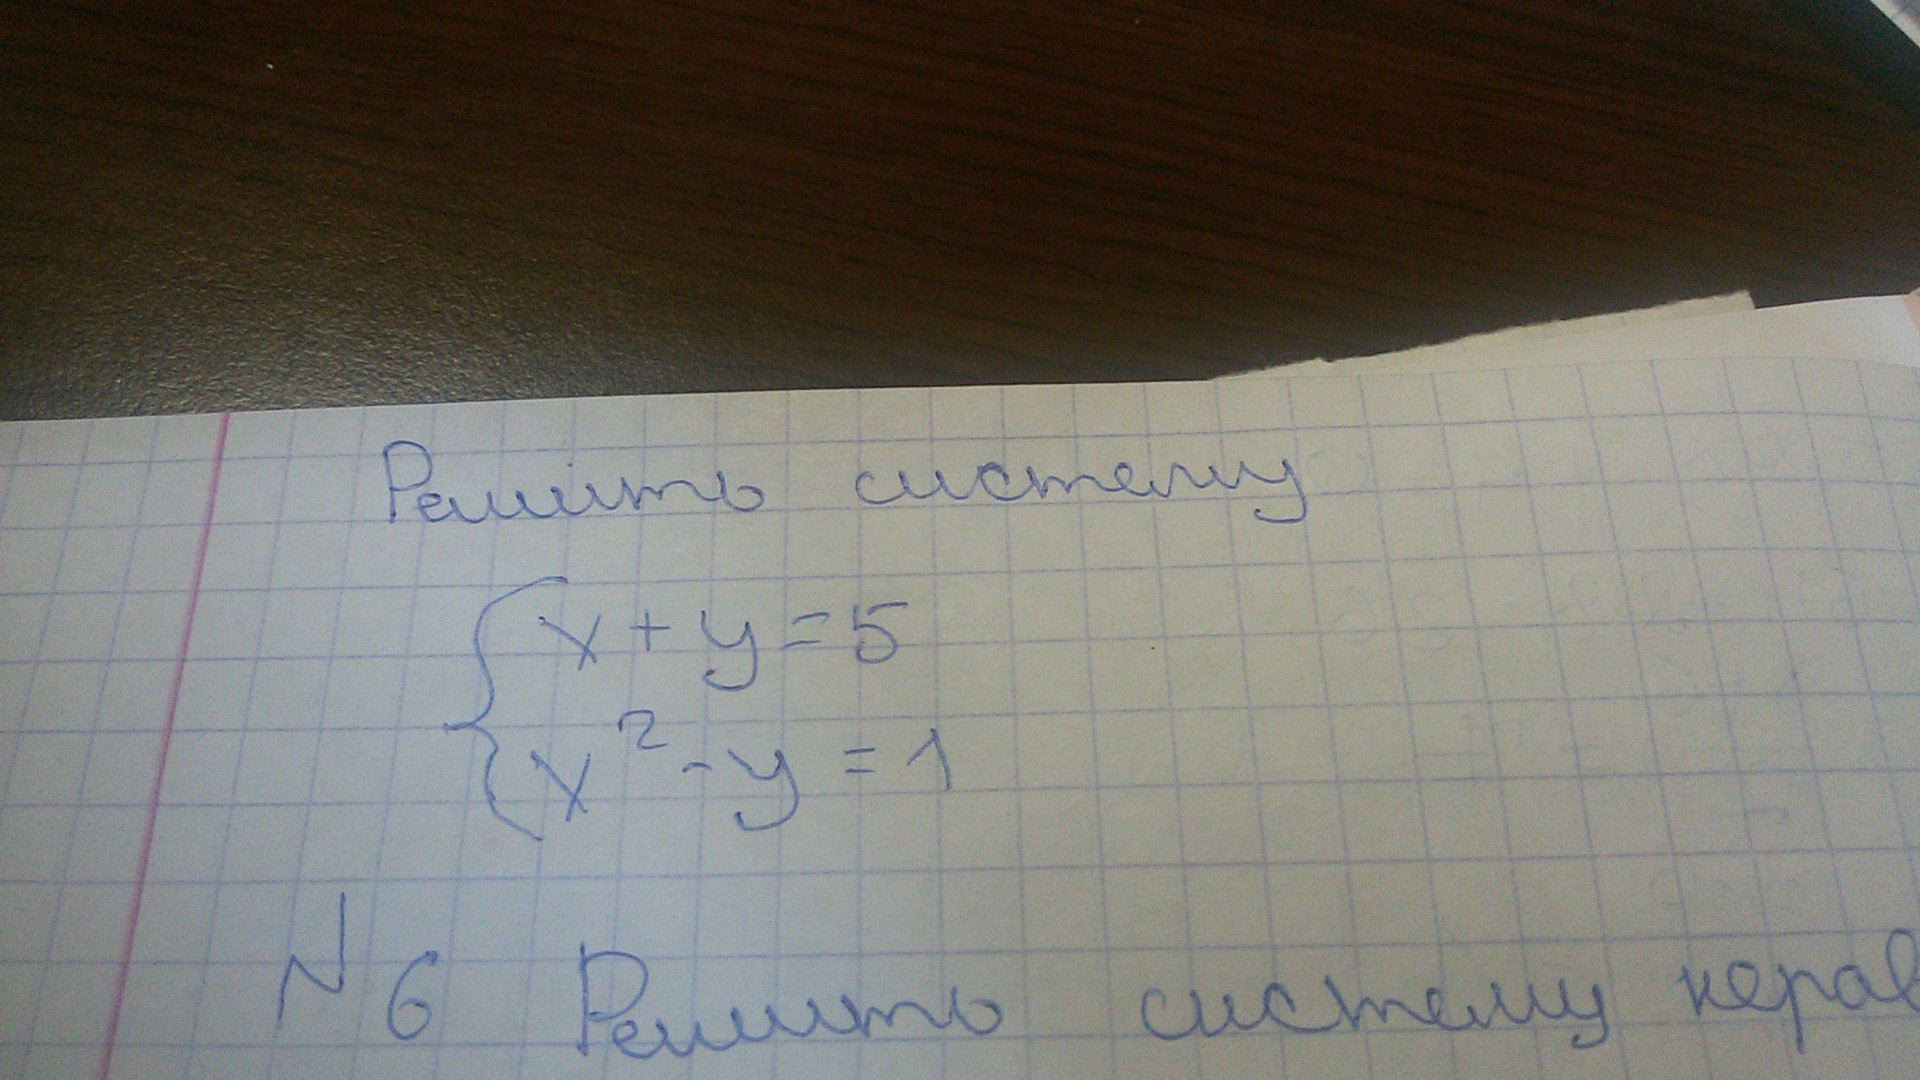 Решить систему
x + y = 5
x² - y = 1
N 6 Решить систему нерав